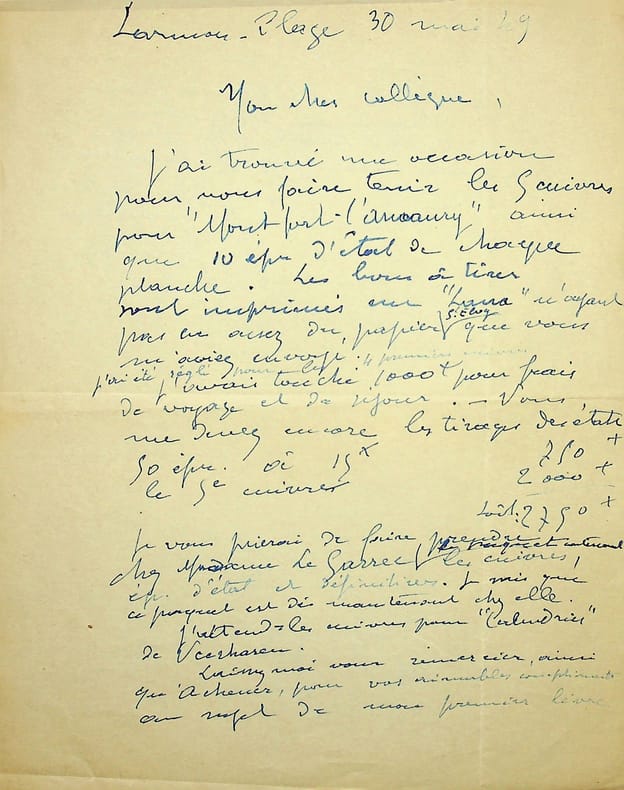 Larmor-Plage 30 mai 49
Mon cher collègue,
J'ai trouvé une occasion
pour vous faire tenir les 5 cuivres
pour "Montfort-l'Amaury" ainsi
que 10 épr. d'état de chaque
planche. Les bons à tirer
sont imprimés sur "Lana" n'ayant
pas eu assez du papier St Eloy que vous
m'aviez envoyé.
j'ai été réglé pour les 4 premiers cuivres
J'avais touché 1000 + pour frais
de voyage et de séjour. - Vous
me devez encore les tirages des états
50 épr. à 15 x 750 +
le 5e cuivres 2000 +
soit: 2750 +
Je vous prierai de faire prendre
chez Madame Le Garrec les cuivres,
épr. d'état et définitives. Je sais que
ce paquet est dès maintenant chez elle.
J'attends les cuivres pour "Calendrier"
de Veerhaeren.
Laissez moi vous remercier, ainsi
que Achener, pour vos aimables compliments
au sujet de mon premier livre